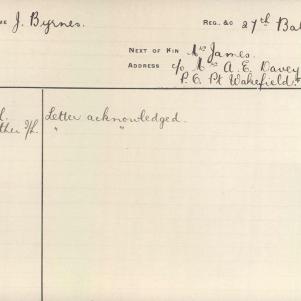 J. Byrnes. REG. &C 27th Bat
NEXT OF KIN Mrs James.
ADDRESS c/o Mrs A. E. Davey
P.O. Pt Wakefield.
Letter acknowledged.
" "